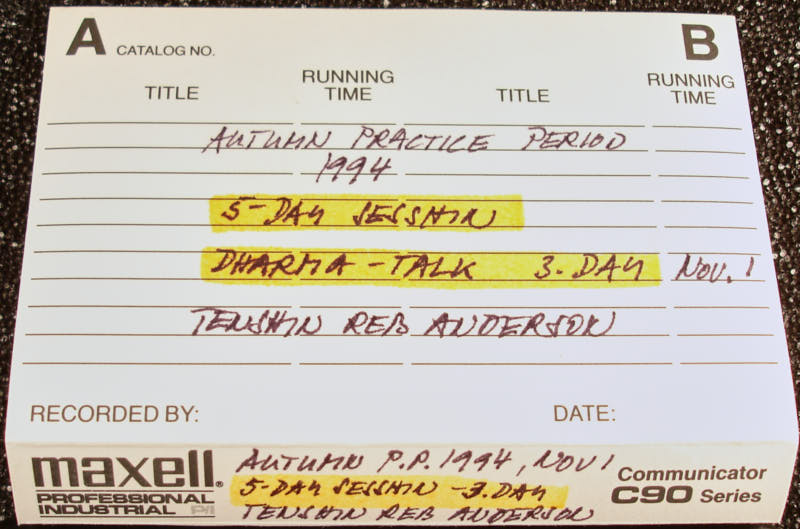 A CATALOG NO. B
TITLE RUNNING TIME TITLE RUNNING TIME
AUTUMN PRACTICE PERIOD
1994
5-DAY SESSHIN
DHARMA-TALK 3. DAY NOV. 1
TENSHIN REB ANDERSON
RECORDED BY: DATE:
maxell®
PROFESSIONAL
INDUSTRIAL P/I
AUTUMN P.P. 1994, NOV 1
5-DAY SESSHIN -3. DAY
TENSHIN REB ANDERSON
Communicator
C90 Series